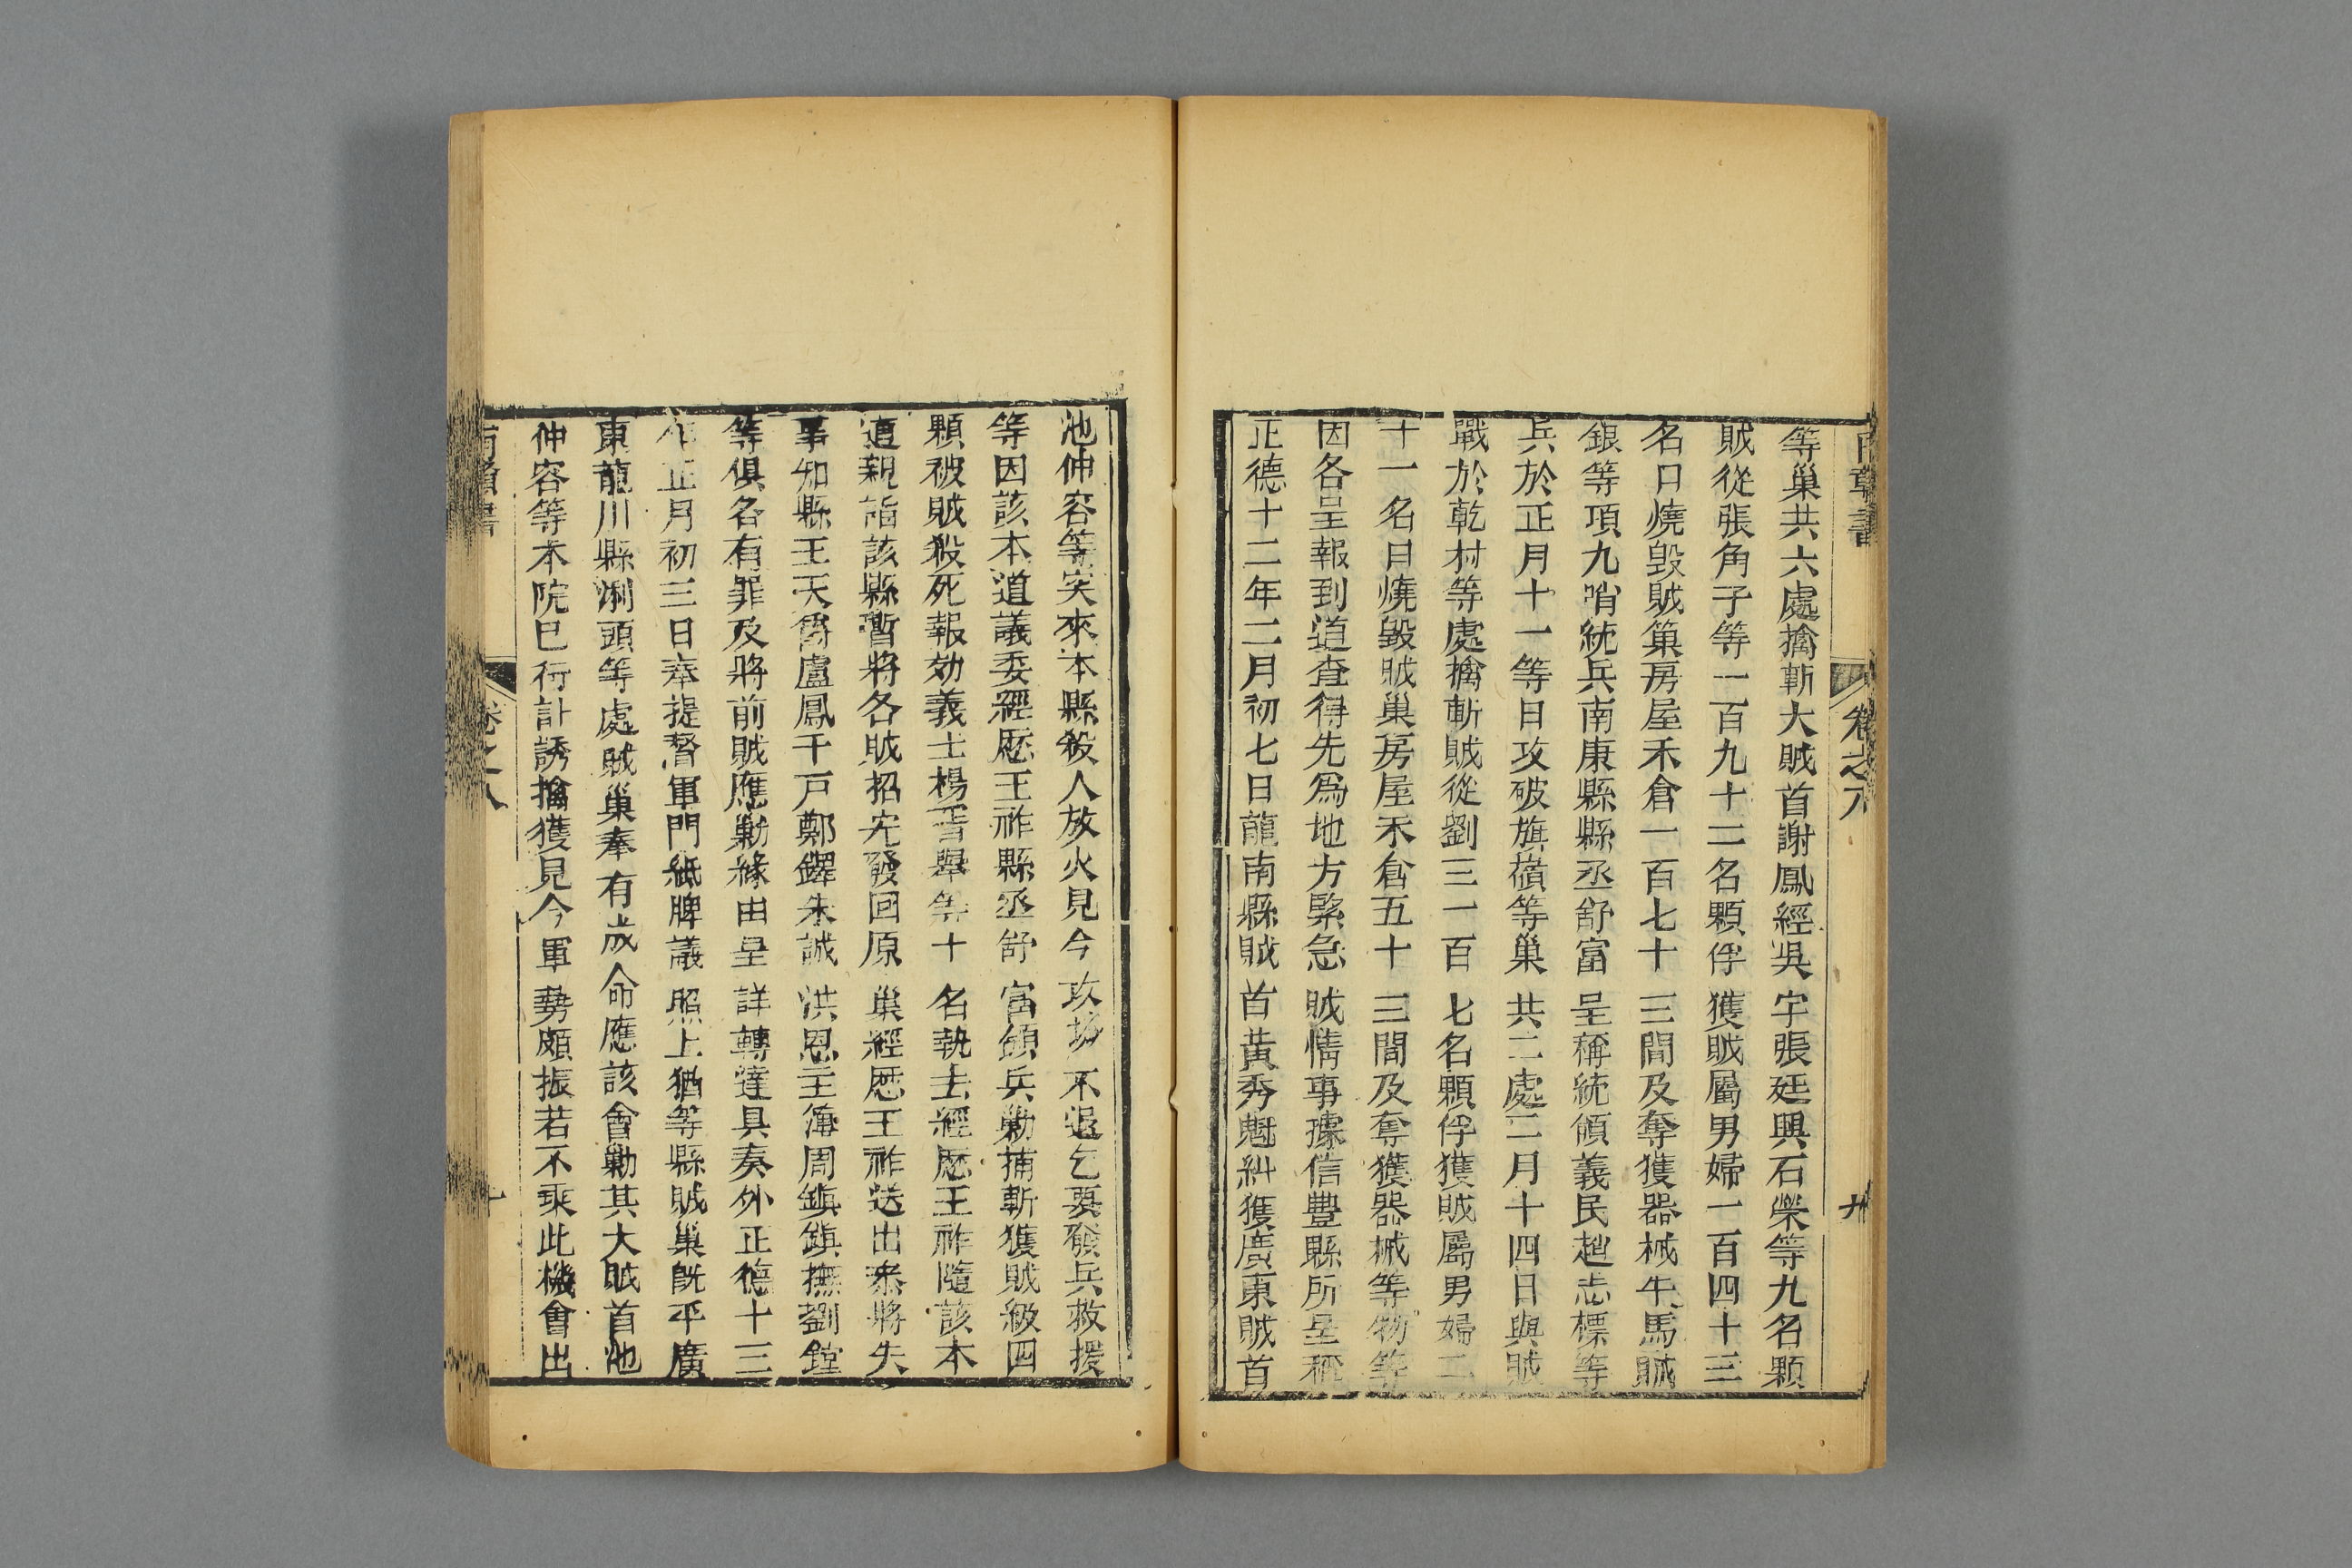 卷之八
等巢共六處擒斬大賊首謝鳳經吳宇張廷興石榮等九名顆
賊從張角子等一百九十二名顆俘獲賊屬男婦一百四十三
名口燒毀賊巢房屋禾倉一百七十三間及奪獲器械牛馬賍
銀等項九哨統兵南康縣縣丞舒富呈稱統領義民趙志標等
兵於正月十一等日攻破旗嶺等巢共二處二月十四日與賊
戰於乾村等處擒斬賊從劉三一百七名顆俘獲賊屬男婦二
十一名口燒毀賊巢房屋禾倉五十三間及奪獲器械等物等
因各呈報到道查得先為地方緊急賊情事據信豐縣所呈稱
正德十二年二月初七日龍南縣賊首黃秀魁糾獲廣東賊首
池仲容等突來本縣殺人放火見今攻城不退乞要發兵救援
等因該本道議委經歷王祚縣丞舒富領兵勦捕斬獲賊級四
顆被賊殺死報効義士楊習舉等十名執去經歷王祚隨該本
道親詣該縣暫將各賊招安發回原巢經歷王祚送出參將失
事知縣王天爵盧鳳千戶鄭鐸朱誠洪恩主簿周鎮鎮撫劉鏜
等俱各有罪及將前賊應勦緣由呈詳轉達具奏外正德十三
年正月初三日奉提督軍門紙牌議照上猶等縣賊巢旣平廣
東龍川縣浰頭等處賊巢奉有成命應該會勦其大賊首池
仲容等本院已行計誘擒獲見今軍勢頗振若不乘此機會出
卷之八